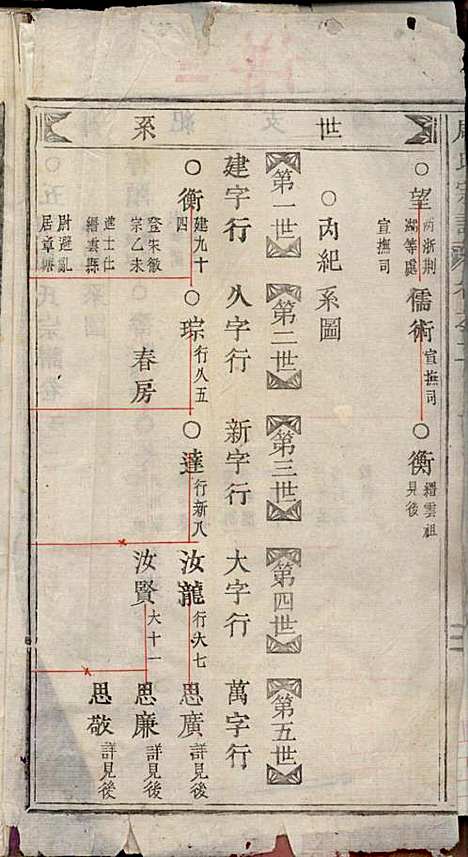 世系
○望 兩浙荆湖等處宣撫司
儒術 宣撫司
○衡 縉雲祖見後
○丙紀系圖
第一世 第二世 第三世 第四世 第五世
建字行 久字行 新字行 大字行 萬字行
○衡 建九十四登朱徽宗乙未進士仕縉雲縣尉避亂居章塘
○琮 行久五
○達 行新八
汝龍 行大七
思廣 詳見後
春房
汝賢 大十一
思廉 詳見後
思敬 詳見後